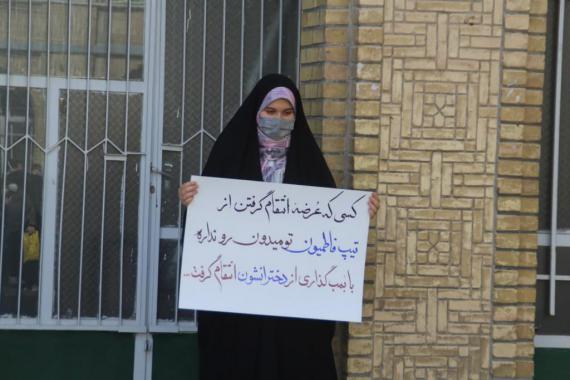 کسی که عُرضه انتقام گرفتن از
تیپ فاطمیون تو میدون رو نداره
با بمب گذاری از دخترانشون انتقام گرفت...